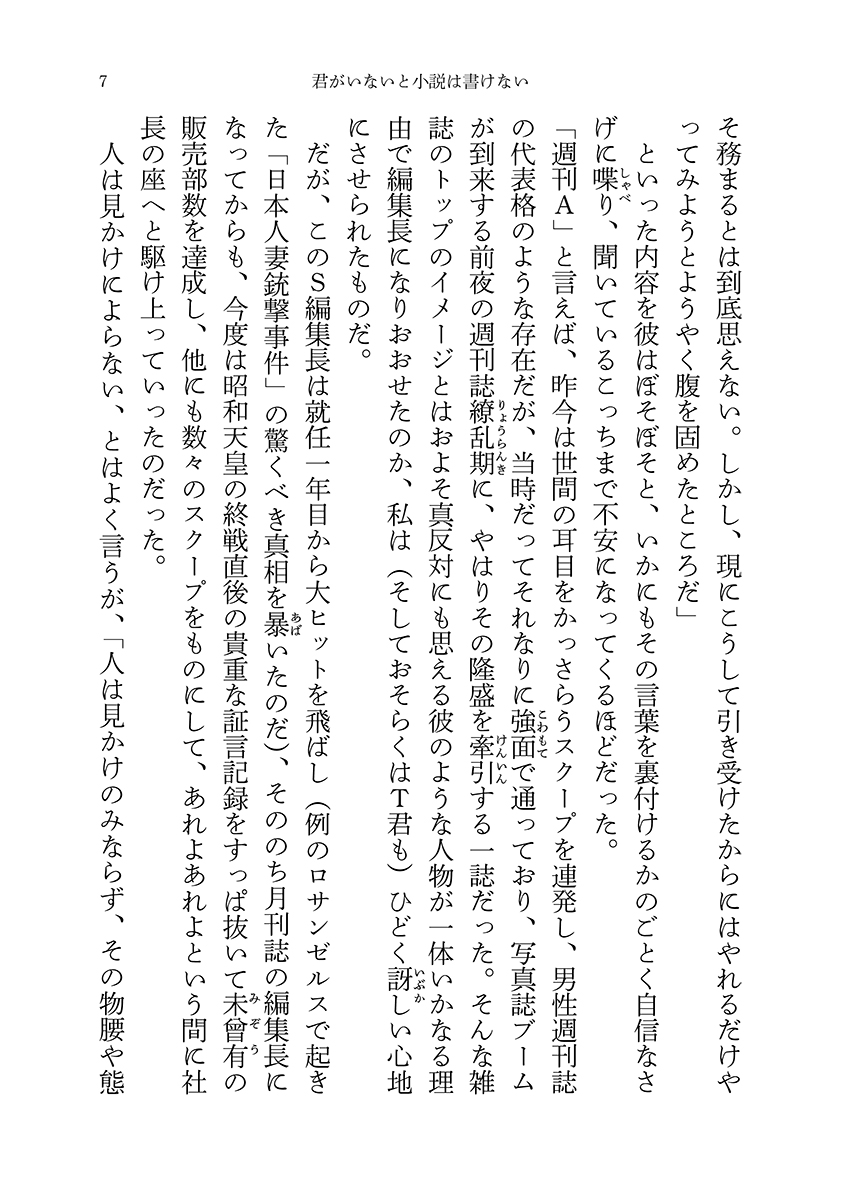 7
君がいないと小説は書けない
そ務まるとは到底思えない。しかし、現にこうして引き受けたからにはやれるだけや
ってみようとようやく腹を固めたところだ」
　といった内容を彼はぼそぼそと、いかにもその言葉を裏付けるかのごとく自信なさ
げに喋り、聞いているこっちまで不安になってくるほどだった。
しゃべ
「週刊Ａ」と言えば、昨今は世間の耳目をかっさらうスクープを連発し、男性週刊誌
の代表格のような存在だが、当時だってそれなりに強面で通っており、写真誌ブーム
こわもて
が到来する前夜の週刊誌繚乱期に、やはりその隆盛を牽引する一誌だった。そんな雑
りょうらんき
けんいん
誌のトップのイメージとはおよそ真反対にも思える彼のような人物が一体いかなる理
由で編集長になりおおせたのか、私は（そしておそらくはＴ君も）ひどく訝しい心地
いぶか
にさせられたものだ。
　だが、このＳ編集長は就任一年目から大ヒットを飛ばし（例のロサンゼルスで起き
た「日本人妻銃撃事件」の驚くべき真相を暴いたのだ）、そののち月刊誌の編集長に
あば
なってからも、今度は昭和天皇の終戦直後の貴重な証言記録をすっぱ抜いて未曾有の
みぞう
販売部数を達成し、他にも数々のスクープをものにして、あれよあれよという間に社
長の座へと駆け上っていったのだった。
　人は見かけによらない、とはよく言うが、「人は見かけのみならず、その物腰や態